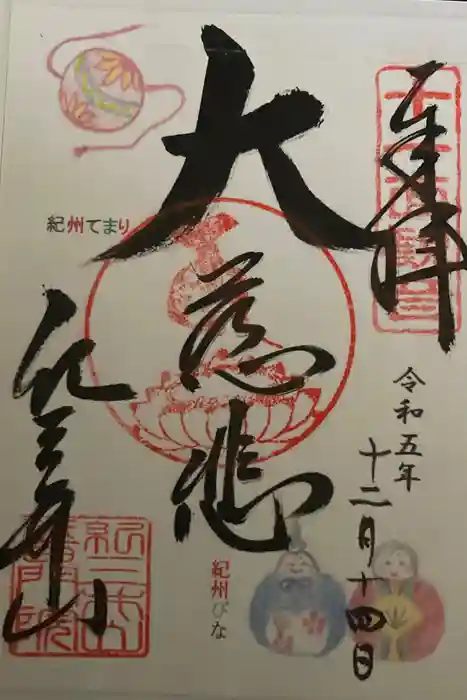 奉拝
令和五年
十二月十四日
大慈悲
紀州てまり
紀州びな
紀三井山